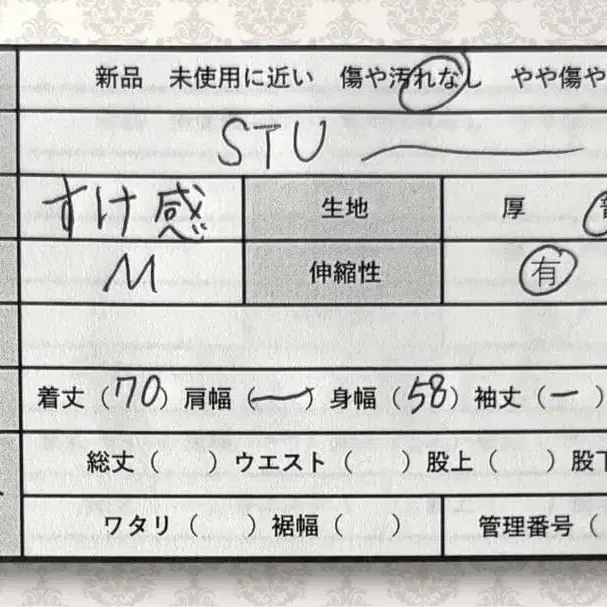 新品 未使用に近い 傷や汚れなし やや傷や
STU
すけ感 生地 厚
M 伸縮性 有
着丈(70) 肩幅(ー) 身幅(58) 袖丈(ー)
総丈( ) ウエスト( ) 股上( ) 股下
ワタリ( ) 裾幅( ) 管理番号(